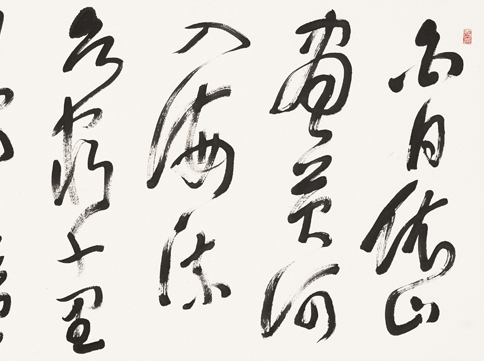 白日依山
盡黃河
入海流
欲窮千里